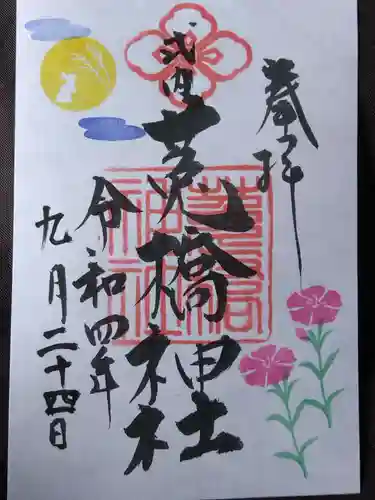 奉拝
式内
莵橋神社
令和四年
九月二十四日